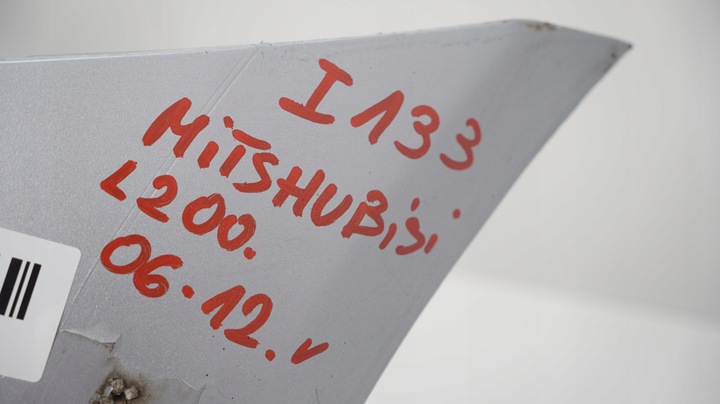 I 133
MiTSHUBiSi
L200.
06.12.v